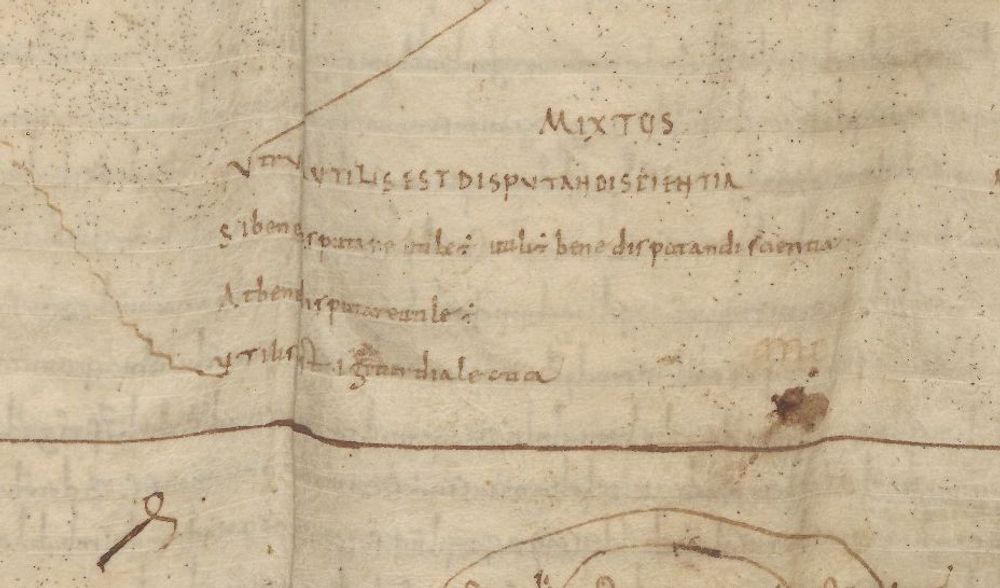 MIXTUS
VTRV UTILIS EST DISPUTANDI SCIENTIA
Si bene disputare utile ÷ utilis ÷ bene disputandi scientia
At bene disputare utile ÷
Vtilis est igitur dialectica